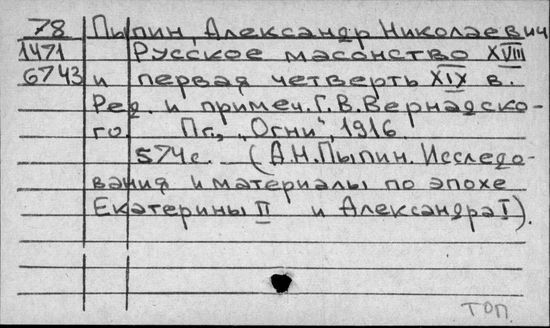 78 Пыпин, Александр Николаевич
1471 Русское масонство XVIII
6743 и первая четверть XIX в.
Ред. и примеч. Г. В. Вернадско-
го. Пг., "Огни", 1916.
574с. (А.Н.Пыпин. Исследо-
вания и материалы по эпохе
Екатерины II и Александра I).
ТОП.